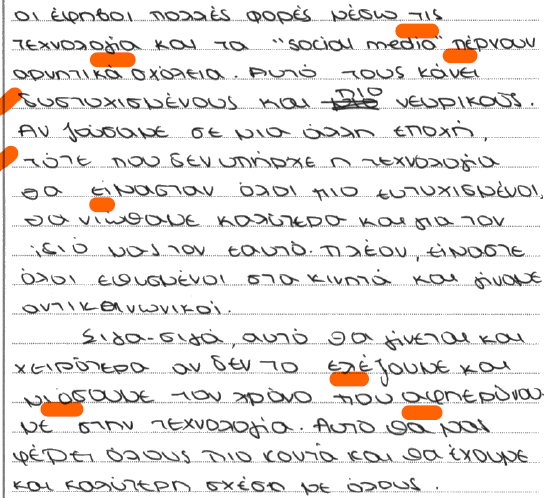 οι έφηβοι πολλές φορές μέσω τις
τεχνολογία και τα "social media" πέρνουν
αρνητικά σχόλεια. Αυτό τους κάνει
δυστυχισμένους και πιο νευρικούς.
Αν ζούσαμε σε μια άλλη εποχή,
τότε που δεν υπήρχε η τεχνολογία
θα είμασταν όλοι πιο ευτυχισμένοι,
θα νιώθαμε καλύτερα και για τον
ίδιό μας τον εαυτό. Πλέον, είμαστε
όλοι εθισμένοι στα κινητά και γίναμε
αντικοινωνικοί.
Σιγα-σιγά, αυτό θα γίνεται και
χειρότερα αν δεν το ελέξουμε και
μιόσουμε τον χρόνο που αφηερόνου-
με στην τεχνολογία. Αυτο θα μας
φέρει όλους πιο κοντά και θα έχουμε
και καλύτερη σχέση με όλους.